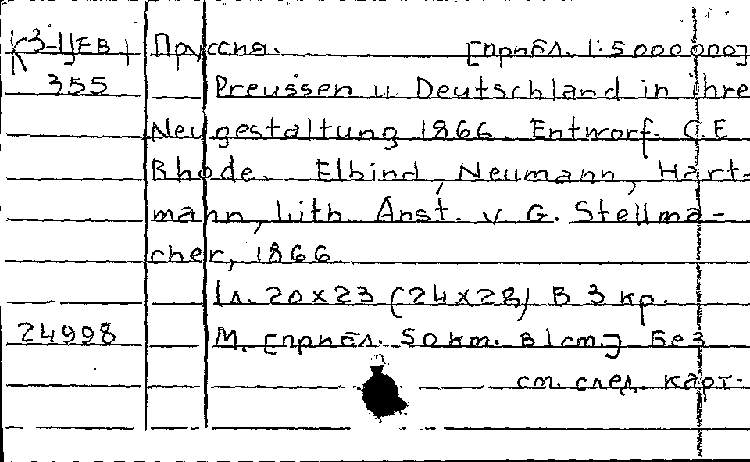 К3-ЦЕВ Пруссия. [прибл. 1:5 000 000]
355 Preussen u Deutschland in ihre
Neugestaltung 1866. Entworf. C.E.
Rhode. Elbind, Neumann, Hart-
mann, Lith. Anst. v. G. Stellma-
cher, 1866
1 л. 20х23 (24х28) В 3 кр.
24998 М. [прибл. 50 km. в 1 cm.] Без
см. след. карт.